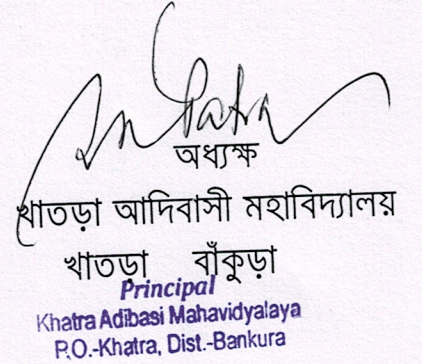 অধ্যক্ষ
খাতড়া আদিবাসী মহাবিদ্যালয়
খাতড়া বাঁকুড়া
Principal
Khatra Adibasi Mahavidyalaya
P.O.-Khatra, Dist.-Bankura